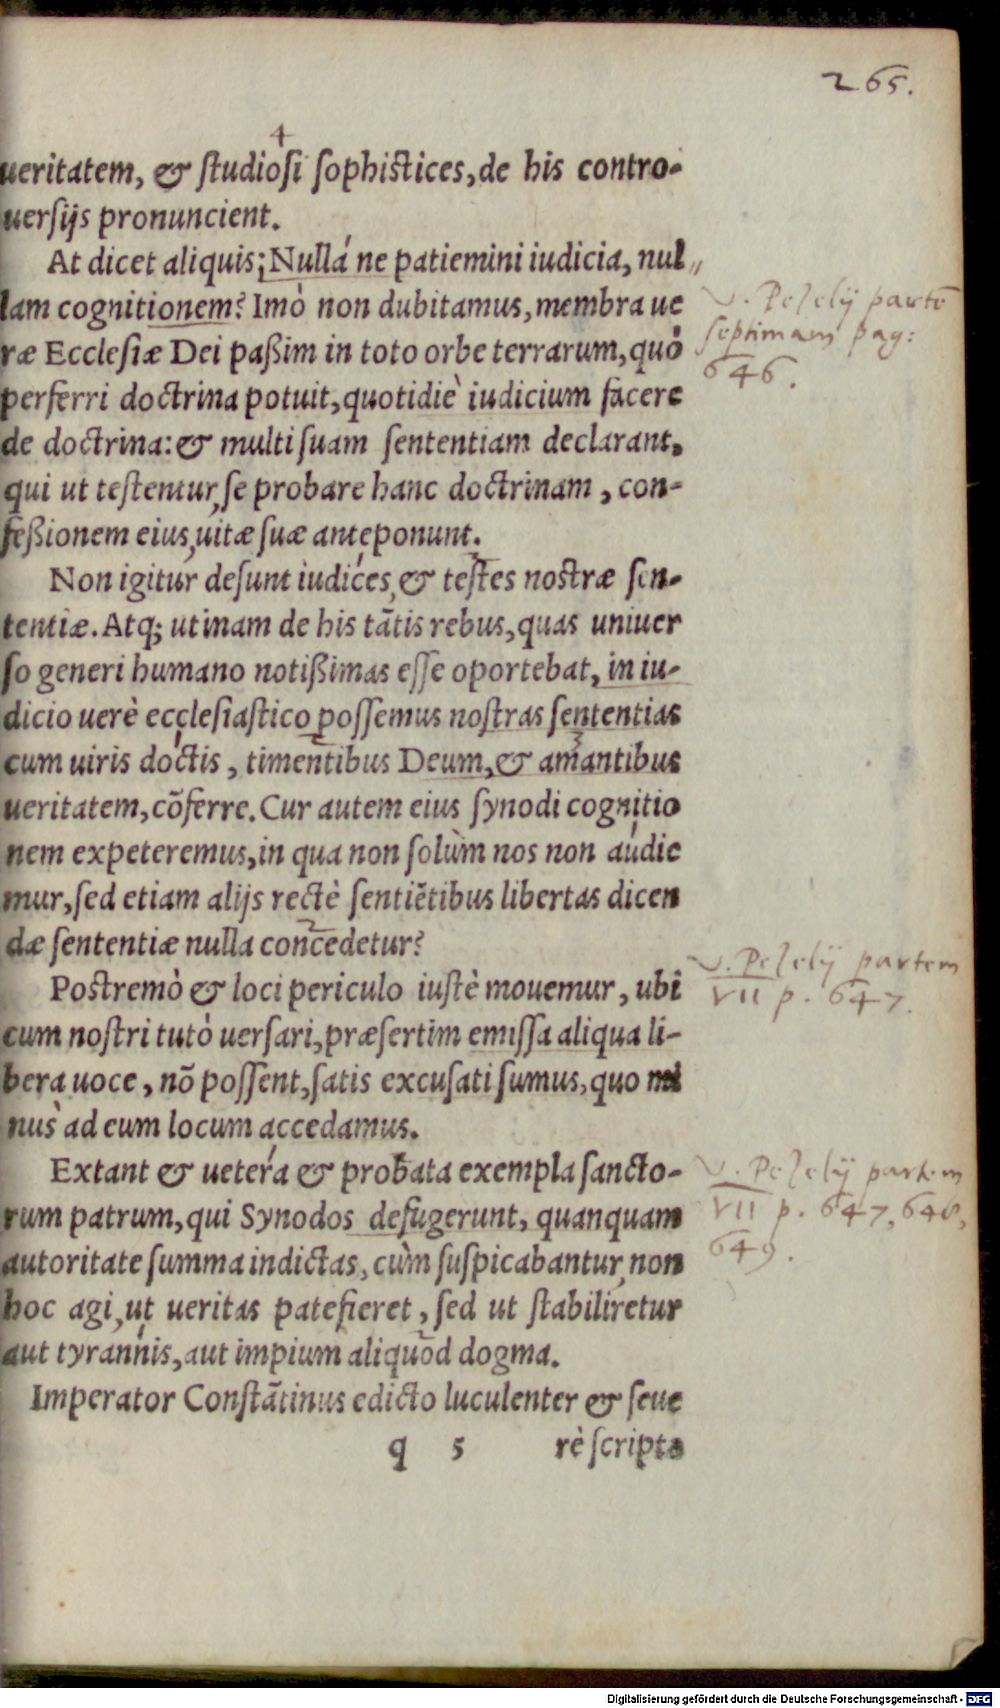 265.
4
ueritatem, & ſtudioſi ſophiſtices, de his contro-
uerſijs pronuncient.
At dicet aliquis; Nullá ne patiemini iudicia, nul„
lam cognitionem? Imò non dubitamus, membra ue
ræ Eccleſiæ Dei paßim in toto orbe terrarum, quò
perferri doctrina potuit, quotidiè iudicium facere
de doctrina: & multi ſuam ſententiam declarant,
qui ut teſtentur, ſe probare hanc doctrinam, con-
feßionem eius, uitæ ſuæ anteponunt.
Non igitur deſunt iudices, & teſtes noſtræ ſen-
tentiæ. Atq; utinam de his tãtis rebus, quas uniuer
ſo generi humano notißimas eſſe oportebat, in iu-
dicio uerè eccleſiaſtico poſſemus noſtras ſententias
cum uiris doctis, timentibus Deum, & amantibus
ueritatem, cõferre. Cur autem eius ſynodi cognitio
nem expeteremus, in qua non ſolùm nos non audie
mur, ſed etiam alijs rectè ſentiẽtibus libertas dicen
dæ ſententiæ nulla concedetur?
Poſtremò & loci periculo iuſtè mouemur, ubi
cum noſtri tutò uerſari, præſertim emiſſa aliqua li-
bera uoce, nõ poſſent, ſatis excuſati ſumus, quo mi
nus ad eum locum accedamus.
Extant & uetera & probata exempla ſancto-
rum patrum, qui Synodos defugerunt, quanquam
autoritate ſumma indictas, cùm ſuſpicabantur, non
hoc agi, ut ueritas patefieret, ſed ut ſtabiliretur
aut tyrannis, aut impium aliquod dogma.
Imperator Conſtãtinus edicto luculenter & ſeue
q 5 rè ſcripto
v. Pezelij parte
septimam pag:
646.
v. Pezelij partem
VII p. 647.
v. Pezelij partem
VII p. 647, 648,
649.
Digitalisierung gefördert durch die Deutsche Forschungsgemeinschaft - DFG